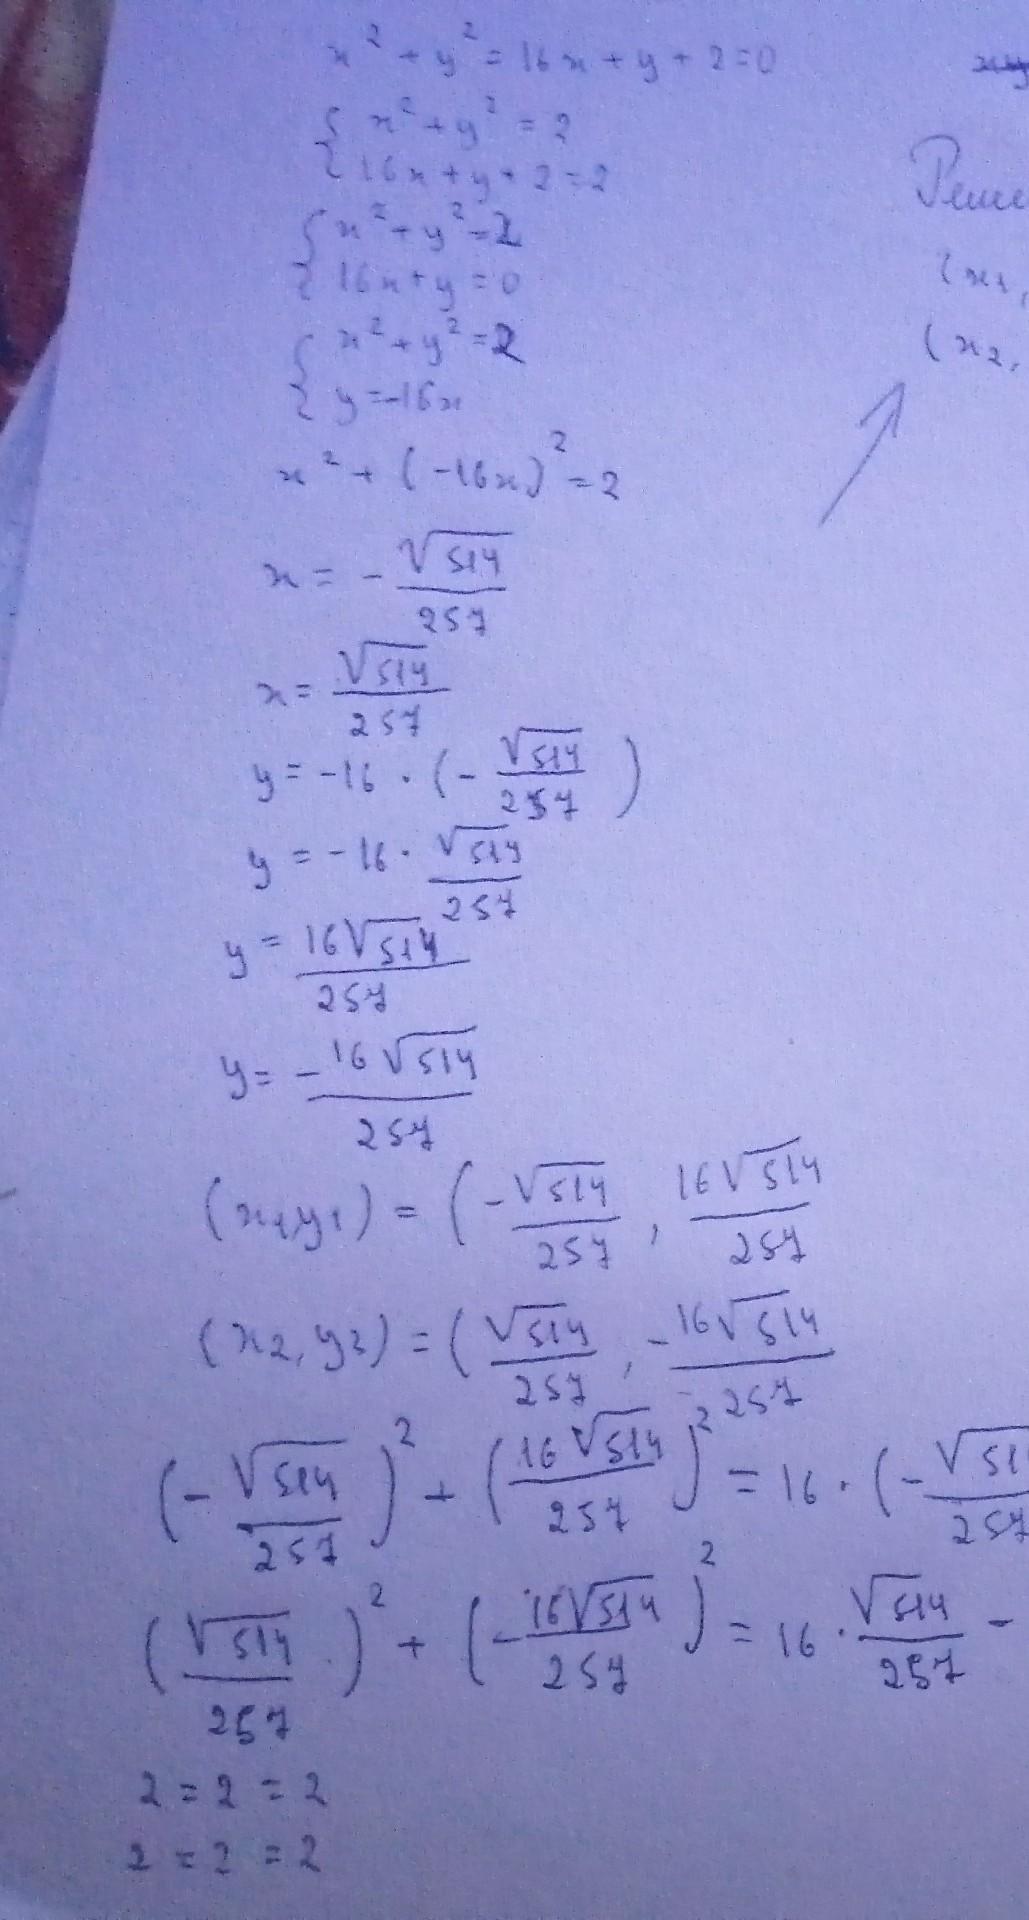 x² + y² = 16x + y + 2 = 0
{ x² + y² = 2
{ 16x + y + 2 = 2
{ x² + y² = 2
{ 16x + y = 0
{ x² + y² = 2
{ y = -16x
x² + (-16x)² = 2
x = - √514/257
x = √514/257
y = -16 · (- √514/257)
y = -16 · √514/257
y = 16√514/257
y = - 16√514/257
(x₁y₁) = (- √514/257, 16√514/257)
(x₂, y₂) = (√514/257, - 16√514/257)
(- √514/257)² + (16√514/257)² = 16 · (- √51/257
(√514/257)² + (- 16√514/257)² = 16 · √514/257 -
2 = 2 = 2
2 = 2 = 2
Реше
(x₁,
(x₂,